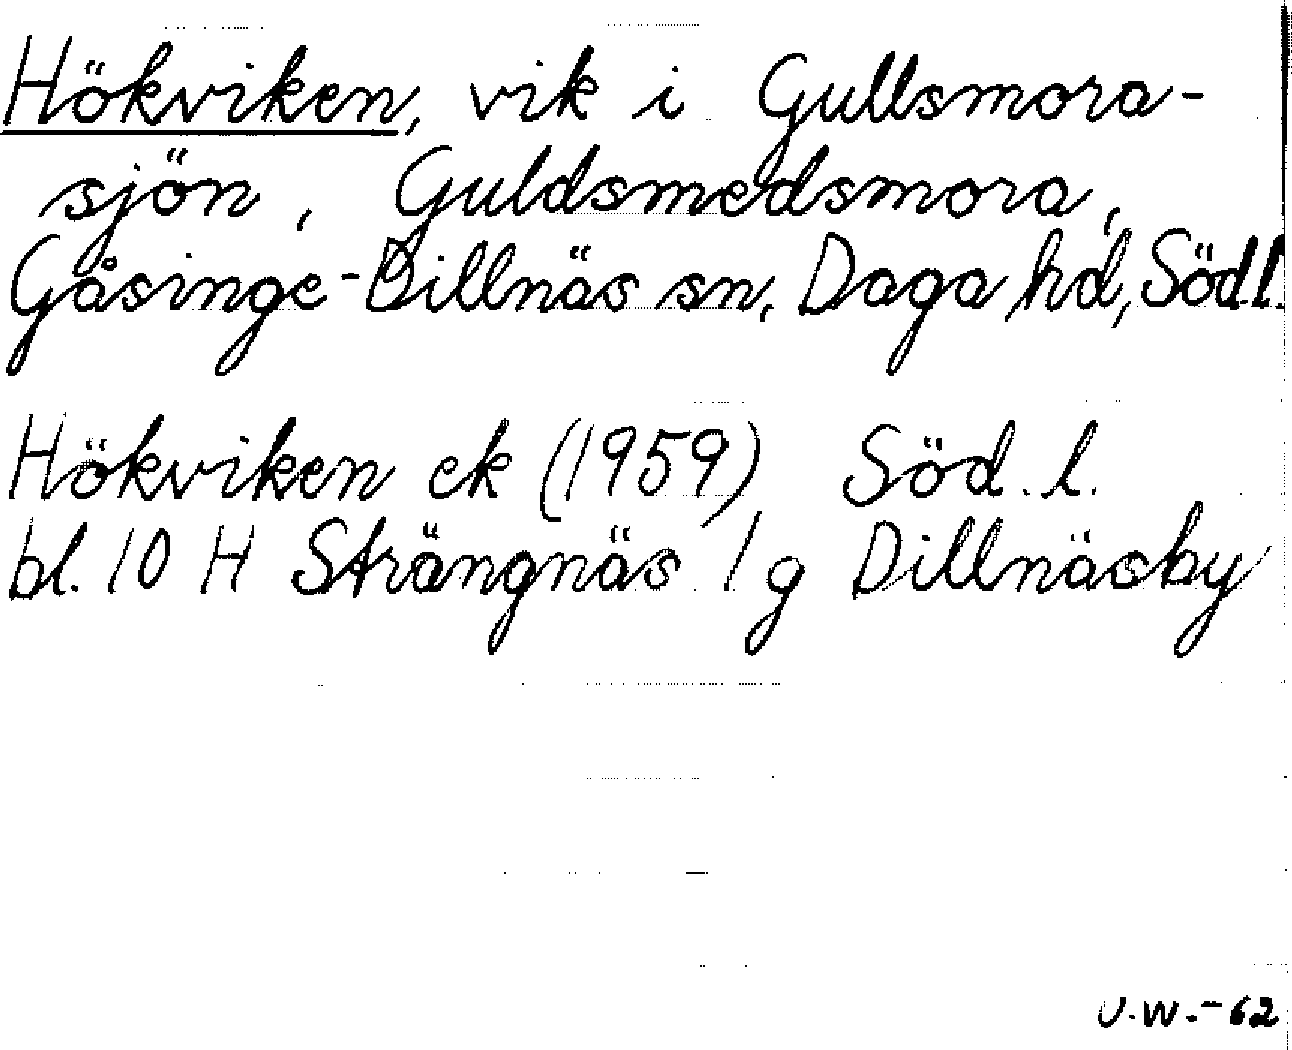 Hökviken, vik i Gullsmora-
sjön, Guldsmedsmora,
Gåsinge-Dillnäs sn, Daga hd, Södl.
Hökviken ek (1959) Söd. l.
bl. 10 H Strängnäs 1 g Dillnäsby
U.W.-62